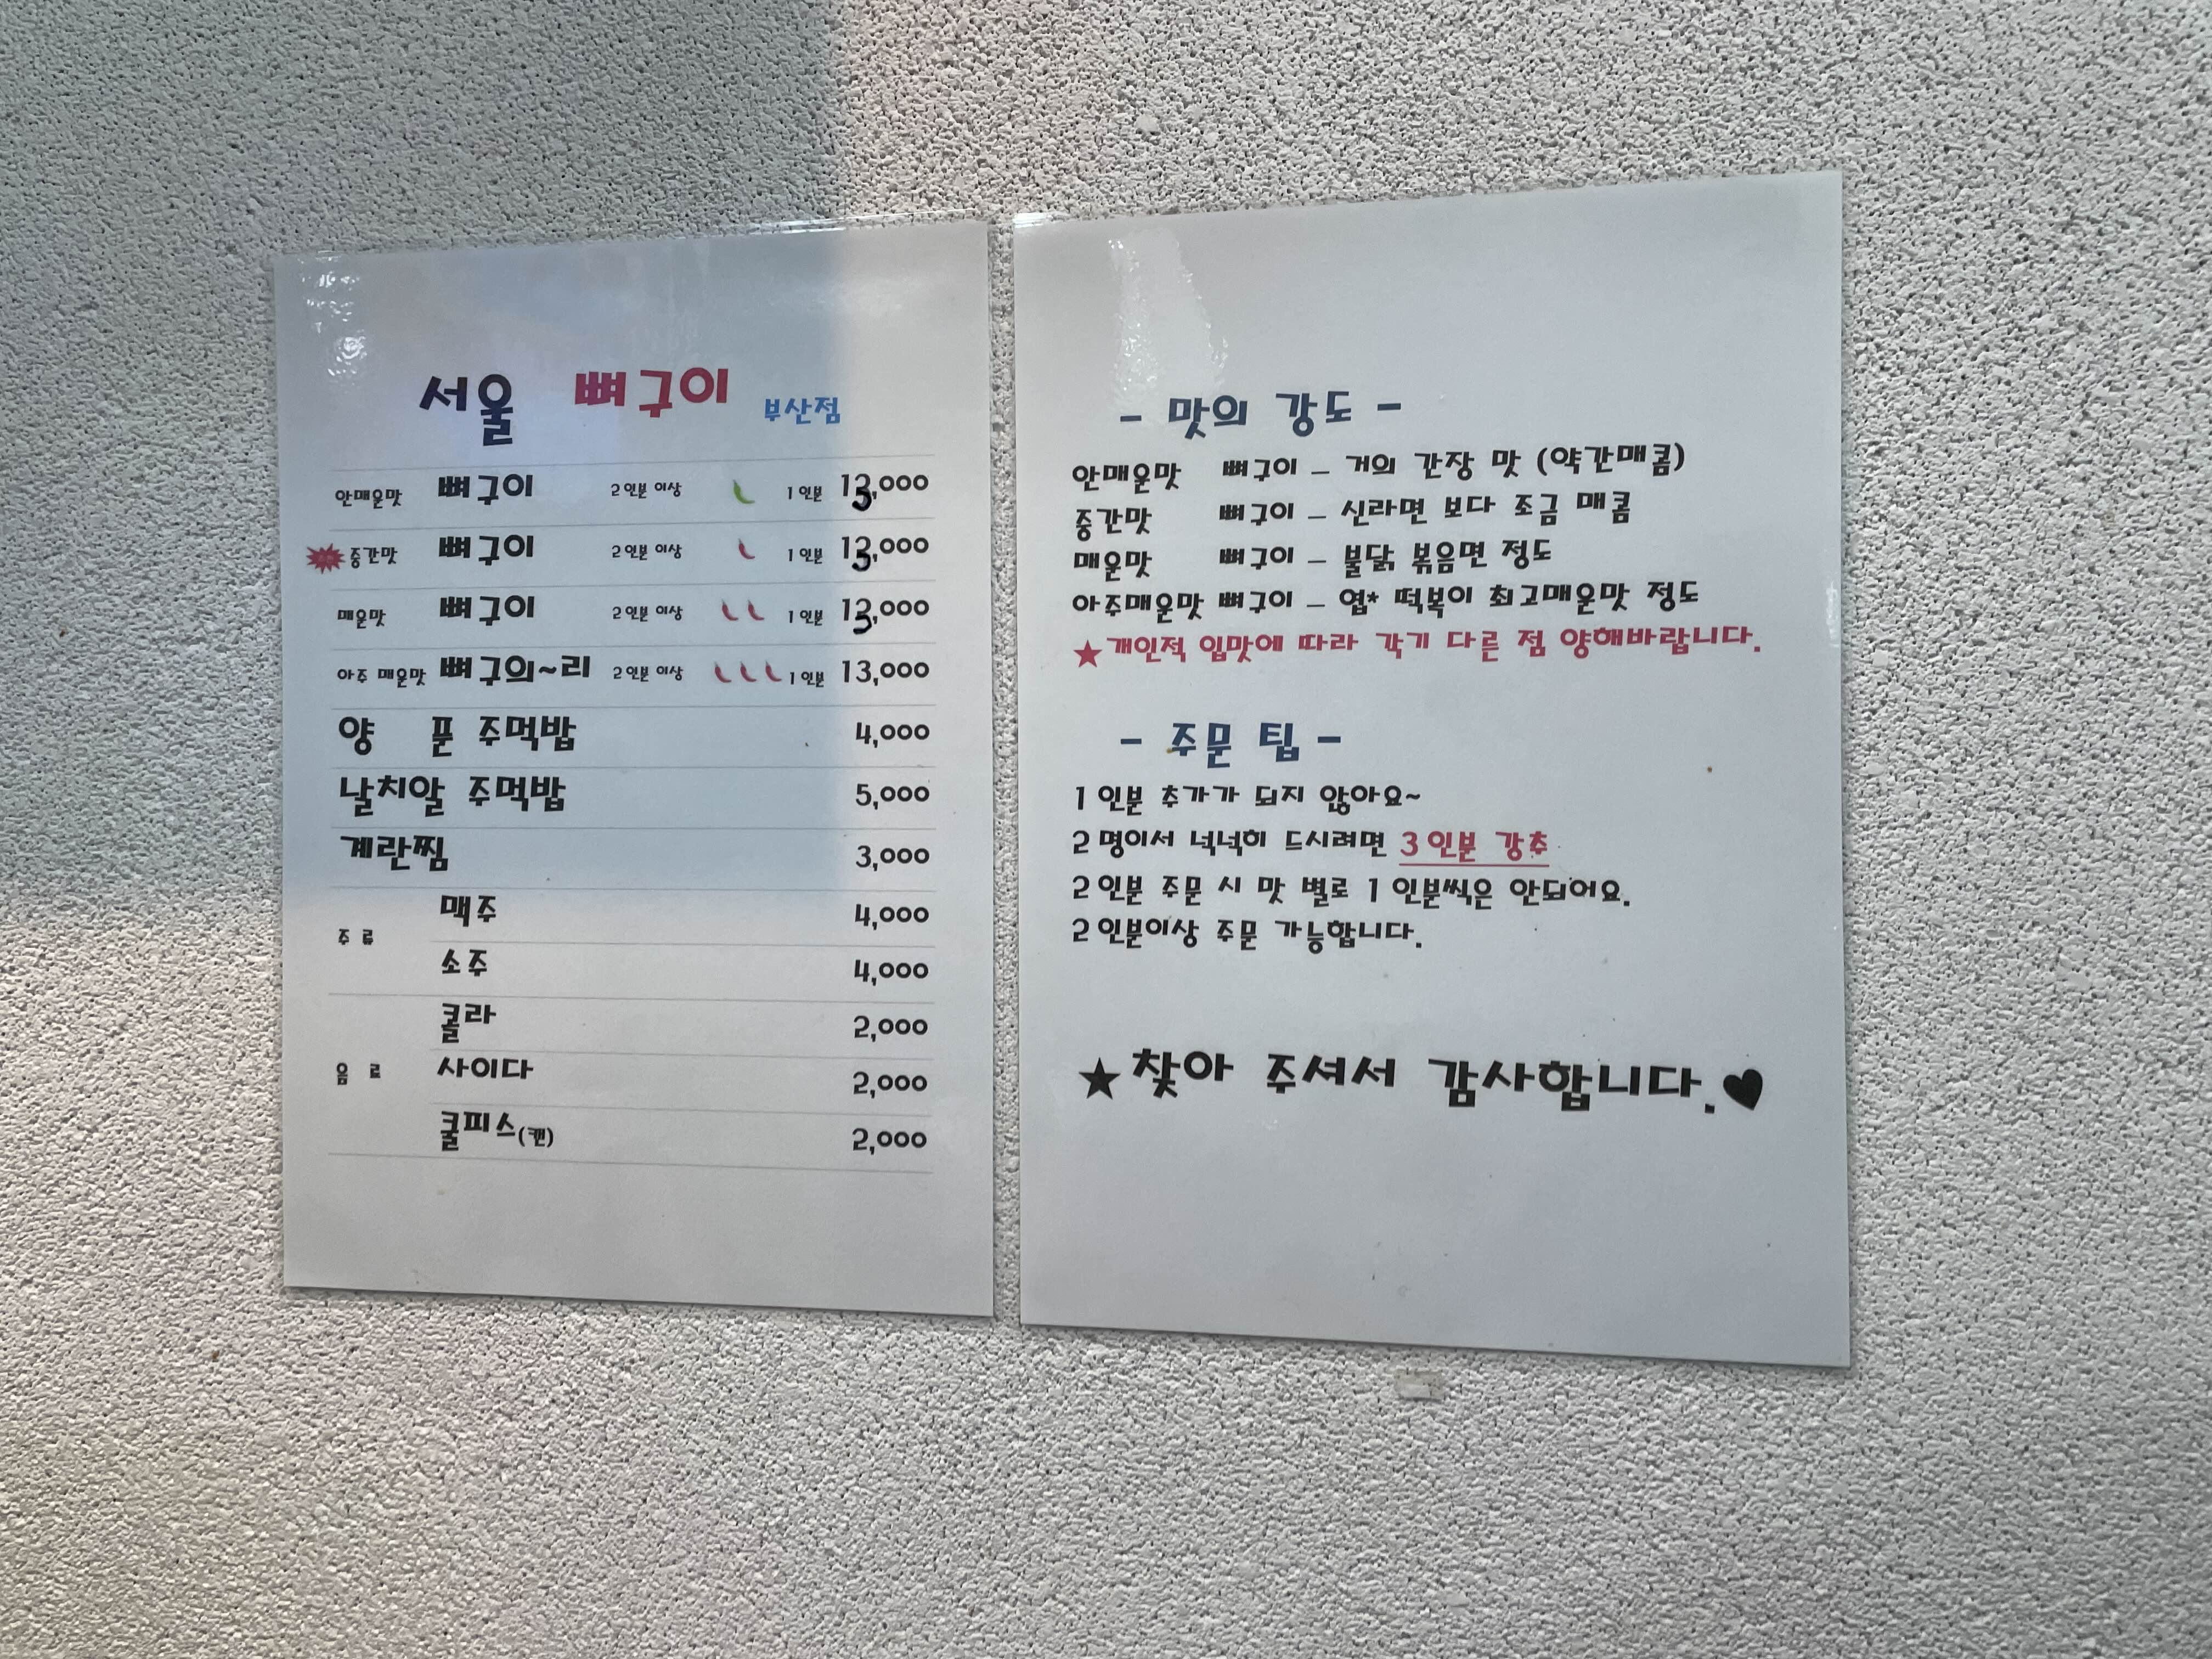 서울 뼈구이 부산점
안매운맛 뼈구이 2인분 이상 1인분 13,000
중간맛 뼈구이 2인분 이상 1인분 13,000
매운맛 뼈구이 2인분 이상 1인분 13,000
아주 매운맛 뼈구의~리 2인분 이상 1인분 13,000
양 푼 주먹밥 4,000
날치알 주먹밥 5,000
계란찜 3,000
주 류
맥주 4,000
소주 4,000
음 료
콜라 2,000
사이다 2,000
쿨피스(캔) 2,000
- 맛의 강도 -
안매운맛 뼈구이 - 거의 간장 맛 (약간매콤)
중간맛 뼈구이 - 신라면 보다 조금 매콤
매운맛 뼈구이 - 불닭 볶음면 정도
아주매운맛 뼈구이 - 엽* 떡볶이 최고매운맛 정도
★개인적 입맛에 따라 각기 다른 점 양해바랍니다.
- 주문 팁 -
1인분 추가가 되지 않아요~
2명이서 넉넉히 드시려면 3인분 강추
2인분 주문 시 맛 별로 1인분씩은 안되어요.
2인분이상 주문 가능합니다.
★찾아 주셔서 감사합니다.♥